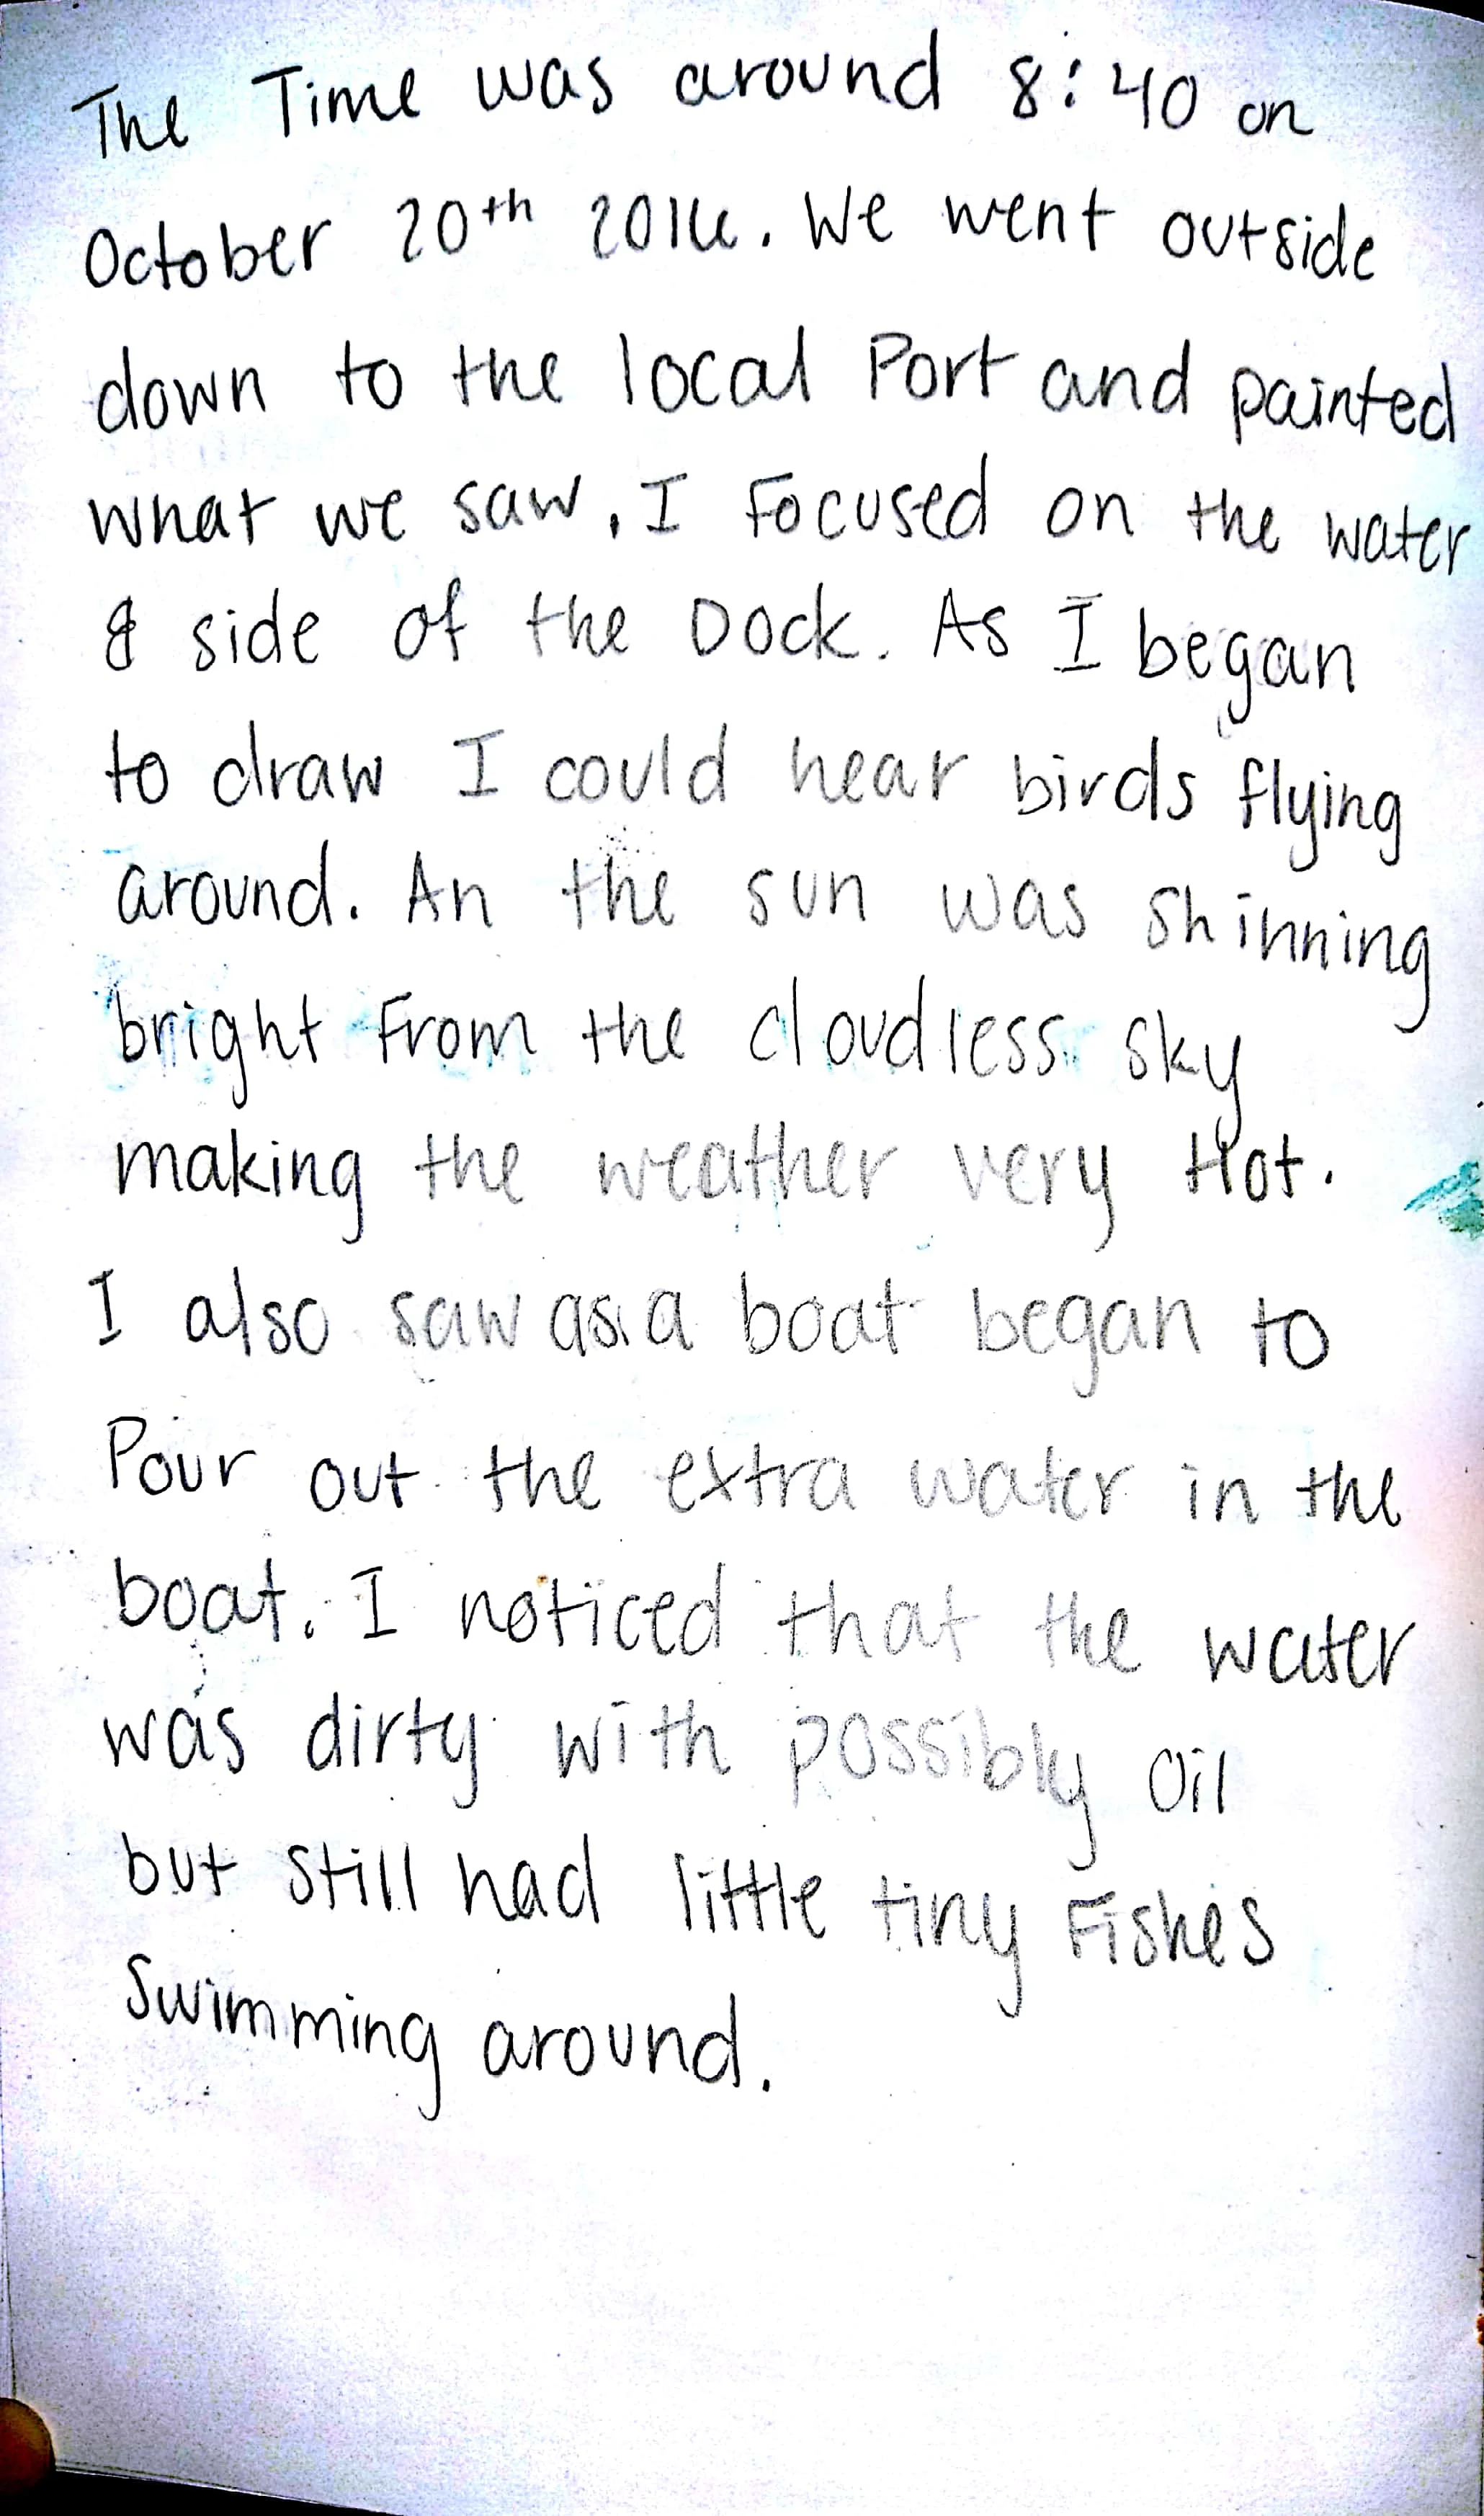 The Time was around 8:40 on
October 20th 2016. We went outside
down to the local Port and painted
what we saw. I Focused on the water
& side of the Dock. As I began
to draw I could hear birds flying
around. An the sun was shinning
bright From the cloudless sky
making the weather very Hot.
I also saw as a boat began to
Pour out the extra water in the
boat. I noticed that the water
was dirty with possibly Oil
but still had little tiny Fishes
Swimming around.